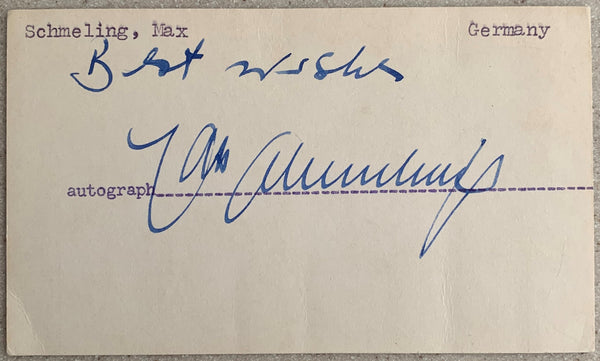 Schmeling, Max Germany
Best wishes
Max Schmeling
autograph